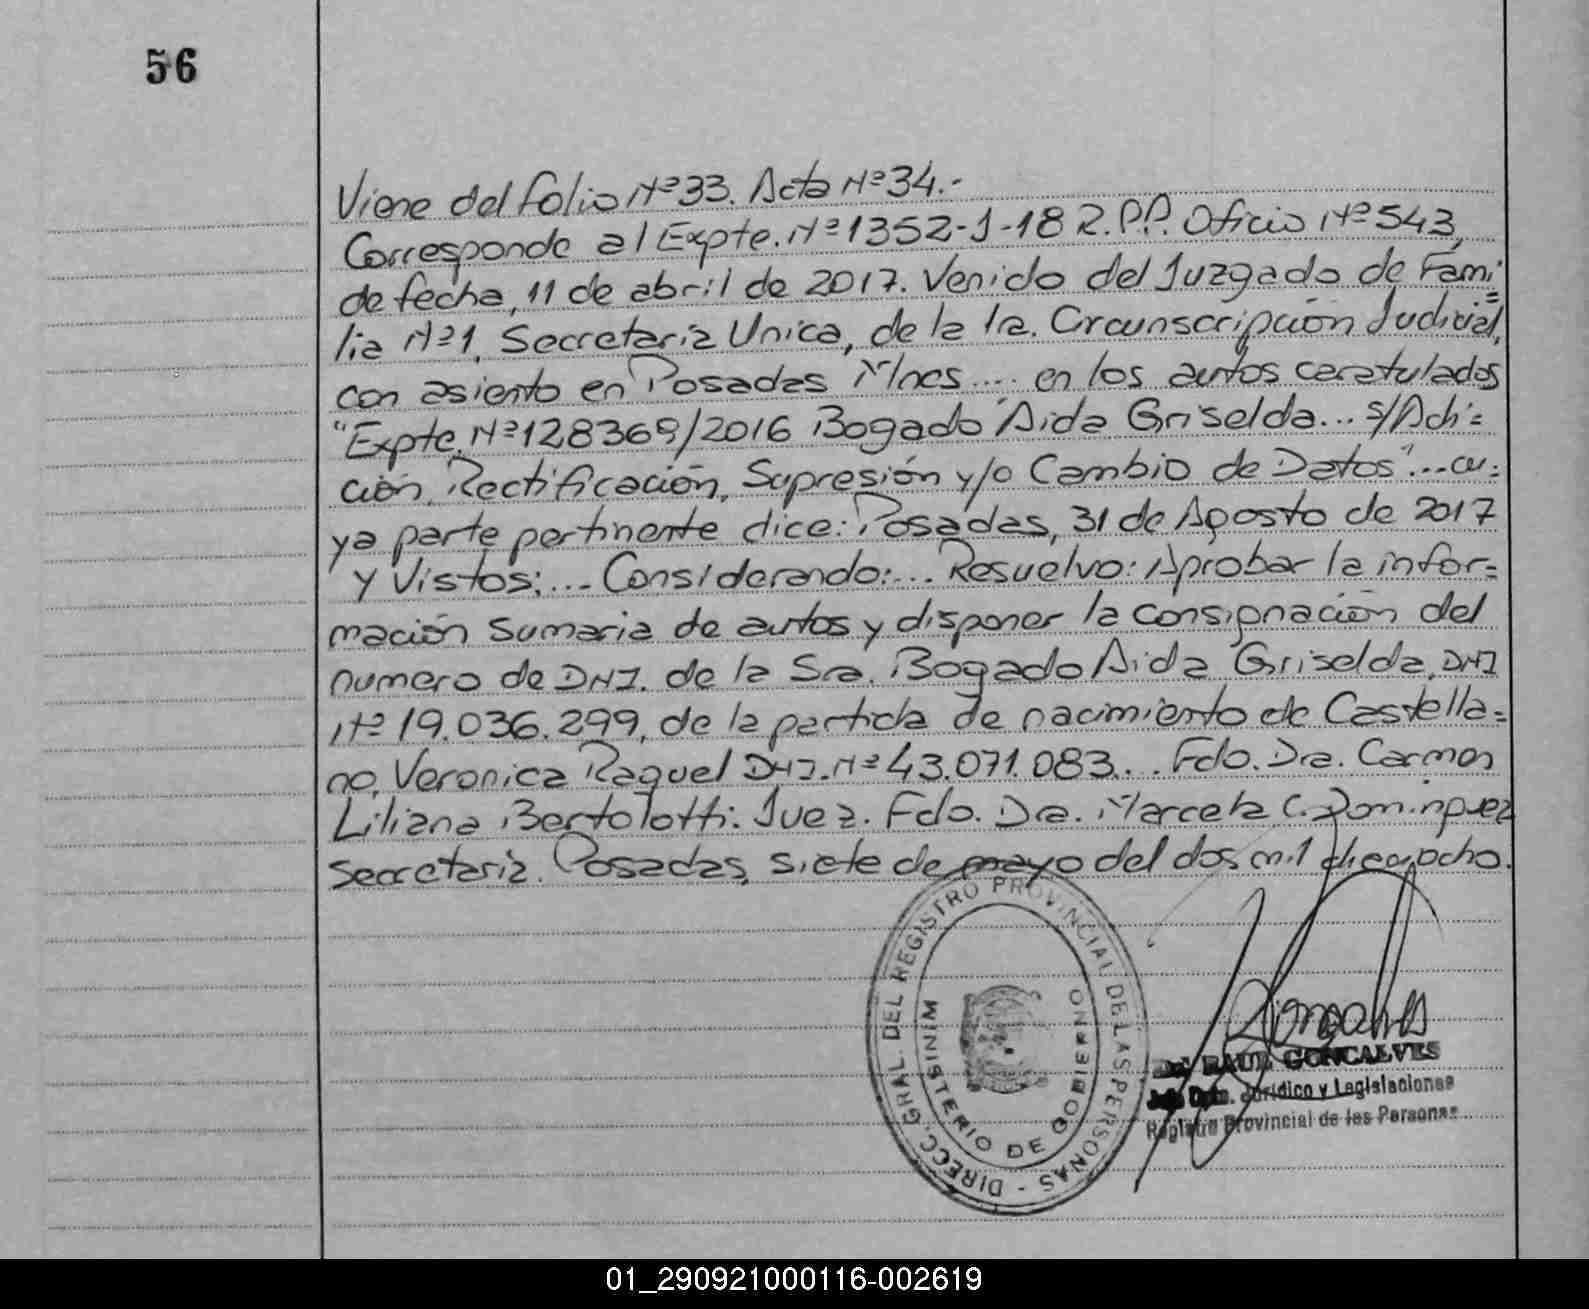 56
Viene del folio Nº 33. Acta Nº 34.-
Corresponde al Expte. Nº 1352-J-18 R.P.P. Oficio Nº 543,
de fecha, 11 de abril de 2017. Venido del Juzgado de Fami=
lia Nº 1, Secretaria Unica, de la 1ra. Circunscripción Judicial,
con asiento en Posadas Mnes.... en los autos caratulados
"Expte. Nº 128369/2016 Bogado Aida Griselda... s/Adi=
ción, Rectificación, Supresión y/o Cambio de Datos"...cu=
ya parte pertinente dice: Posadas, 31 de Agosto de 2017
y Vistos:... Considerando:... Resuelvo: Aprobar la infor=
mación sumaria de autos y disponer la consignación del
numero de DNI. de la Sra. Bogado Aida Griselda, DNI
Nº 19.036.299, de la partida de nacimiento de Castella=
no, Veronica Raquel DNI. Nº 43.071.083... Fdo. Dra. Carmen
Liliana Bertolotti. Juez. Fdo. Dra. Marcela C. Dominguez
secretaria. Posadas, siete de mayo del dos mil dieciocho.
DIRECC. GRAL. DEL REGISTRO PROVINCIAL DE LAS PERSONAS -
MINISTERIO DE GOBIERNO
RAUL GONCALVES
Jefe Dpto. Jurídico y Legislaciones
Registro Provincial de las Personas
01_290921000116-002619